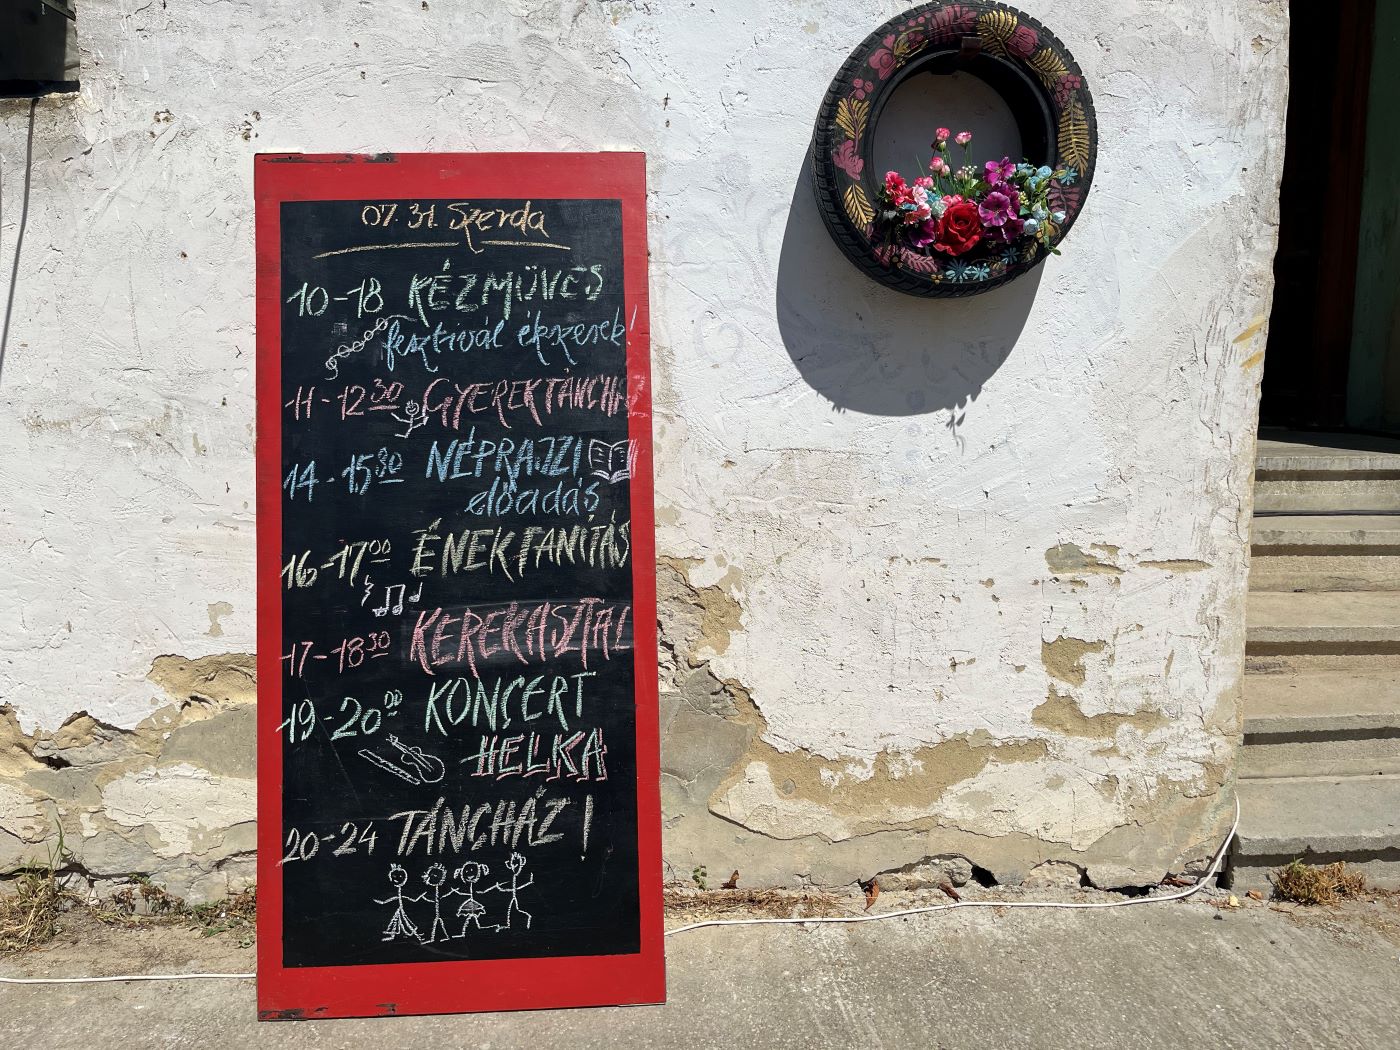 07. 31. Szerda
10-18 KÉZMŰVES
fesztivál ékszerek!
11-12 30 GYEREKTÁNCHÁZ
14-15 30 NÉPRAJZI
előadás
16-17 00 ÉNEKTANÍTÁS
17-18 30 KEREKASZTAL
19-20 00 KONCERT
HELKA
20-24 TÁNCHÁZ!